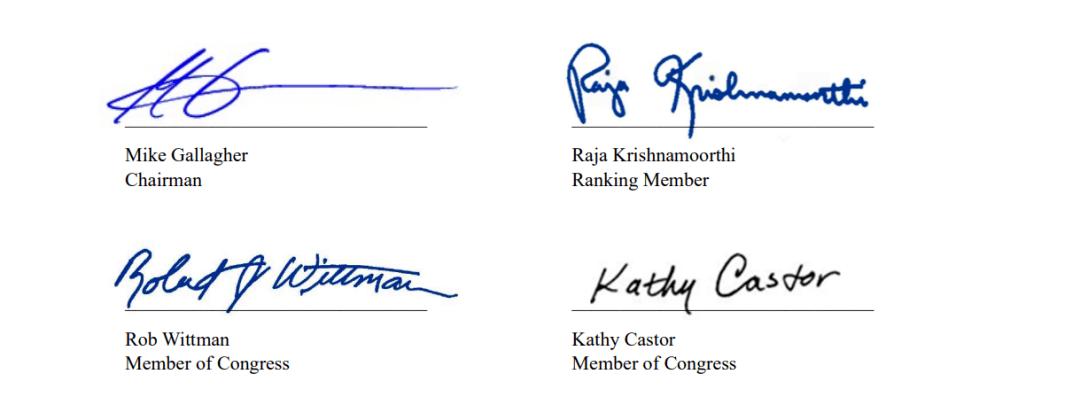 Mike Gallagher
Chairman
Raja Krishnamoorthi
Raja Krishnamoorthi
Ranking Member
Robert J Wittman
Rob Wittman
Member of Congress
Kathy Castor
Kathy Castor
Member of Congress